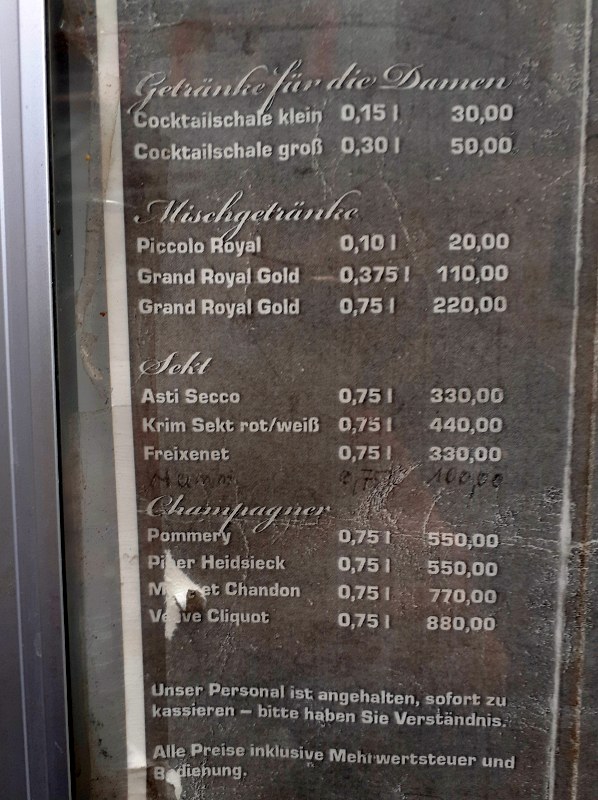 Getränke für die Damen
Cocktailschale klein 0,15 l 30,00
Cocktailschale groß 0,30 l 50,00
Mischgetränke
Piccolo Royal 0,10 l 20,00
Grand Royal Gold 0,375 l 110,00
Grand Royal Gold 0,75 l 220,00
Sekt
Asti Secco 0,75 l 330,00
Krim Sekt rot/weiß 0,75 l 440,00
Freixenet 0,75 l 330,00
0,75 l 100,00
Champagner
Pommery 0,75 l 550,00
Piper Heidsieck 0,75 l 550,00
M et Chandon 0,75 l 770,00
Veuve Cliquot 0,75 l 880,00
Unser Personal ist angehalten, sofort zu
kassieren – bitte haben Sie Verständnis.
Alle Preise inklusive Mehrwertsteuer und
Bedienung.